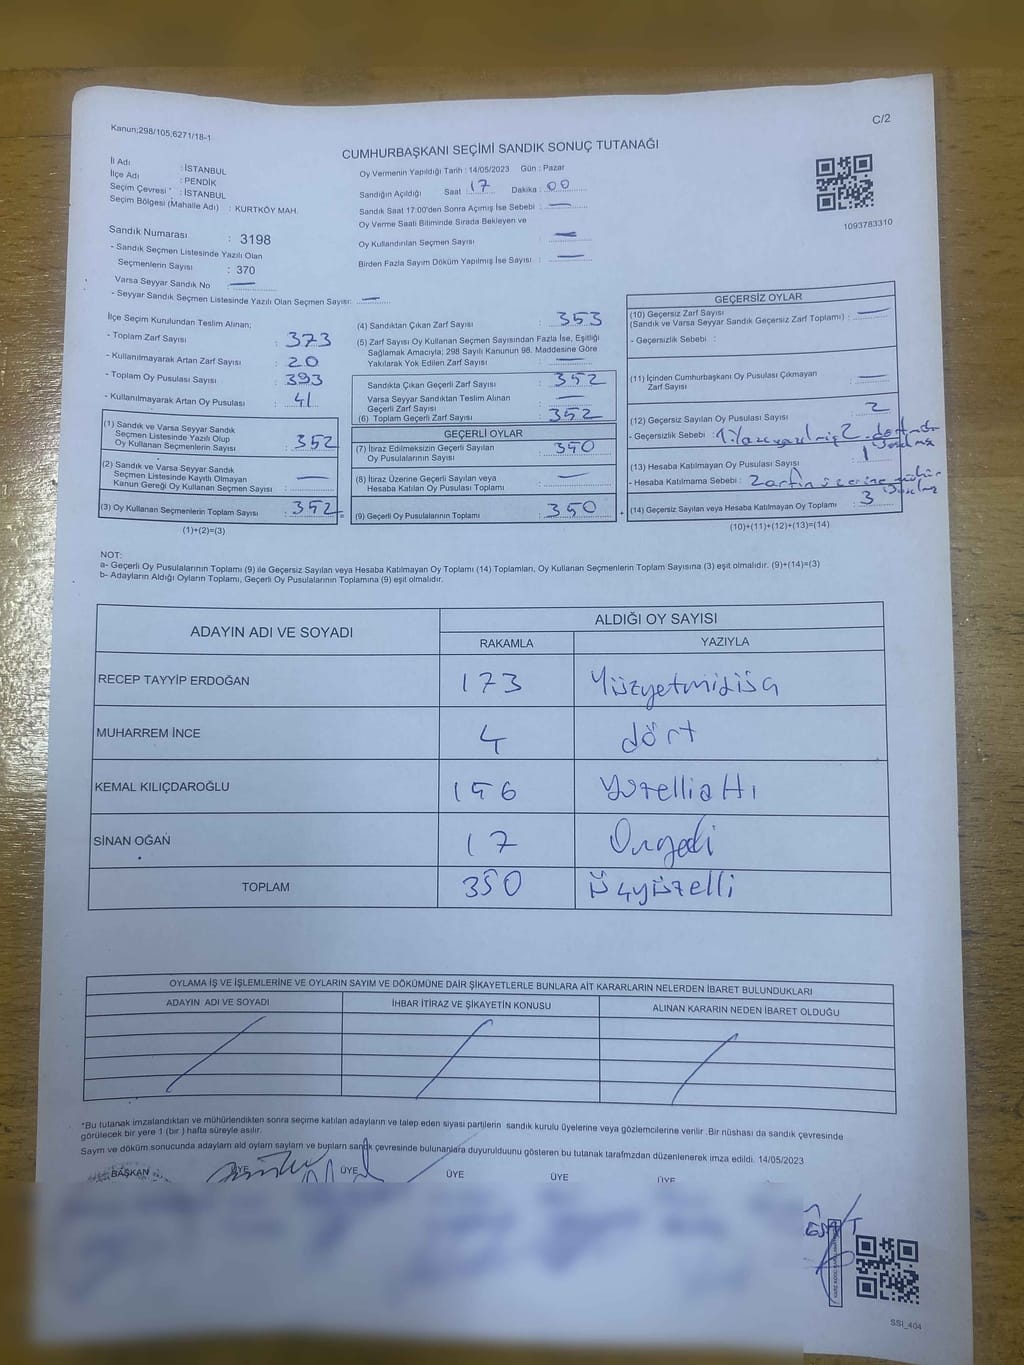 Kanun;298/105;6271/18-1
C/2
CUMHURBAŞKANI SEÇİMİ SANDIK SONUÇ TUTANAĞI
İl Adı : İSTANBUL
İlçe Adı : PENDİK
Seçim Çevresi : İSTANBUL
Seçim Bölgesi (Mahalle Adı) : KURTKÖY MAH.
Sandık Numarası : 3198
- Sandık Seçmen Listesinde Yazılı Olan
Seçmenlerin Sayısı : 370
Varsa Seyyar Sandık No : —
- Seyyar Sandık Seçmen Listesinde Yazılı Olan Seçmen Sayısı: —
Oy Vermenin Yapıldığı Tarih : 14/05/2023 Gün : Pazar
Sandığın Açıldığı Saat : 17 Dakika : 00
Sandık Saat 17:00'den Sonra Açımış İse Sebebi : —
Oy Verme Saati Bitiminde Sırada Bekleyen ve
Oy Kullandırılan Seçmen Sayısı : —
Birden Fazla Sayım Döküm Yapılmış İse Sayısı : —
1093783310
İlçe Seçim Kurulundan Teslim Alınan;
- Toplam Zarf Sayısı : 373
- Kullanılmayarak Artan Zarf Sayısı : 20
- Toplam Oy Pusulası Sayısı : 393
- Kullanılmayarak Artan Oy Pusulası : 41
(1) Sandık ve Varsa Seyyar Sandık
Seçmen Listesinde Yazılı Olup
Oy Kullanan Seçmenlerin Sayısı : 352
(2) Sandık ve Varsa Seyyar Sandık
Seçmen Listesinde Kayıtlı Olmayan
Kanun Gereği Oy Kullanan Seçmen Sayısı : —
(3) Oy Kullanan Seçmenlerin Toplam Sayısı : 352 =
(1)+(2)=(3)
(4) Sandıktan Çıkan Zarf Sayısı : 353
(5) Zarf Sayısı Oy Kullanan Seçmen Sayısından Fazla İse, Eşitliği
Sağlamak Amacıyla; 298 Sayılı Kanunun 98. Maddesine Göre
Yakılarak Yok Edilen Zarf Sayısı : —
Sandıkta Çıkan Geçerli Zarf Sayısı : 352
Varsa Seyyar Sandıktan Teslim Alınan
Geçerli Zarf Sayısı : —
(6) Toplam Geçerli Zarf Sayısı : 352
GEÇERLİ OYLAR
(7) İtiraz Edilmeksizin Geçerli Sayılan
Oy Pusulalarının Sayısı : 350
(8) İtiraz Üzerine Geçerli Sayılan veya
Hesaba Katılan Oy Pusulası Toplamı : —
(9) Geçerli Oy Pusulalarının Toplamı : 350 +
GEÇERSİZ OYLAR
(10) Geçersiz Zarf Sayısı
(Sandık ve Varsa Seyyar Sandık Geçersiz Zarf Toplamı) : —
- Geçersizlik Sebebi :
(11) İçinden Cumhurbaşkanı Oy Pusulası Çıkmayan
Zarf Sayısı : —
(12) Geçersiz Sayılan Oy Pusulası Sayısı : 2
- Geçersizlik Sebebi :
(13) Hesaba Katılmayan Oy Pusulası Sayısı : 1
- Hesaba Katılmama Sebebi : Zarfın üzerine mühür
(14) Geçersiz Sayılan veya Hesaba Katılmayan Oy Toplamı : 3
(10)+(11)+(12)+(13)=(14)
NOT:
a- Geçerli Oy Pusulalarının Toplamı (9) ile Geçersiz Sayılan veya Hesaba Katılmayan Oy Toplamı (14) Toplamları, Oy Kullanan Seçmenlerin Toplam Sayısına (3) eşit olmalıdır. (9)+(14)=(3)
b- Adayların Aldığı Oyların Toplamı, Geçerli Oy Pusulalarının Toplamına (9) eşit olmalıdır.
ADAYIN ADI VE SOYADI
ALDIĞI OY SAYISI
RAKAMLA YAZIYLA
RECEP TAYYİP ERDOĞAN 173
MUHARREM İNCE 4 dört
KEMAL KILIÇDAROĞLU 156 yüzellialtı
SİNAN OĞAN 17 Onyedi
TOPLAM 350 üçyüzelli
OYLAMA İŞ VE İŞLEMLERİNE VE OYLARIN SAYIM VE DÖKÜMÜNE DAİR ŞİKAYETLERLE BUNLARA AİT KARARLARIN NELERDEN İBARET BULUNDUKLARI
ADAYIN ADI VE SOYADI
İHBAR İTİRAZ VE ŞİKAYETİN KONUSU
ALINAN KARARIN NEDEN İBARET OLDUĞU
*Bu tutanak imzalandıktan ve mühürlendikten sonra seçime katılan adayların ve talep eden siyasi partilerin sandık kurulu üyelerine veya gözlemcilerine verilir .Bir nüshası da sandık çevresinde
görülecek bir yere 1 (bir ) hafta süreyle asılır.
Sayım ve döküm sonucunda adayların aldı oyların sayların ve bunların sandık çevresinde bulunanlara duyurulduunu gösteren bu tutanak tarafımzdan düzenlenerek imza edildi. 14/05/2023
BAŞKAN ÜYE ÜYE ÜYE ÜYE ÜYE
SSİ_404